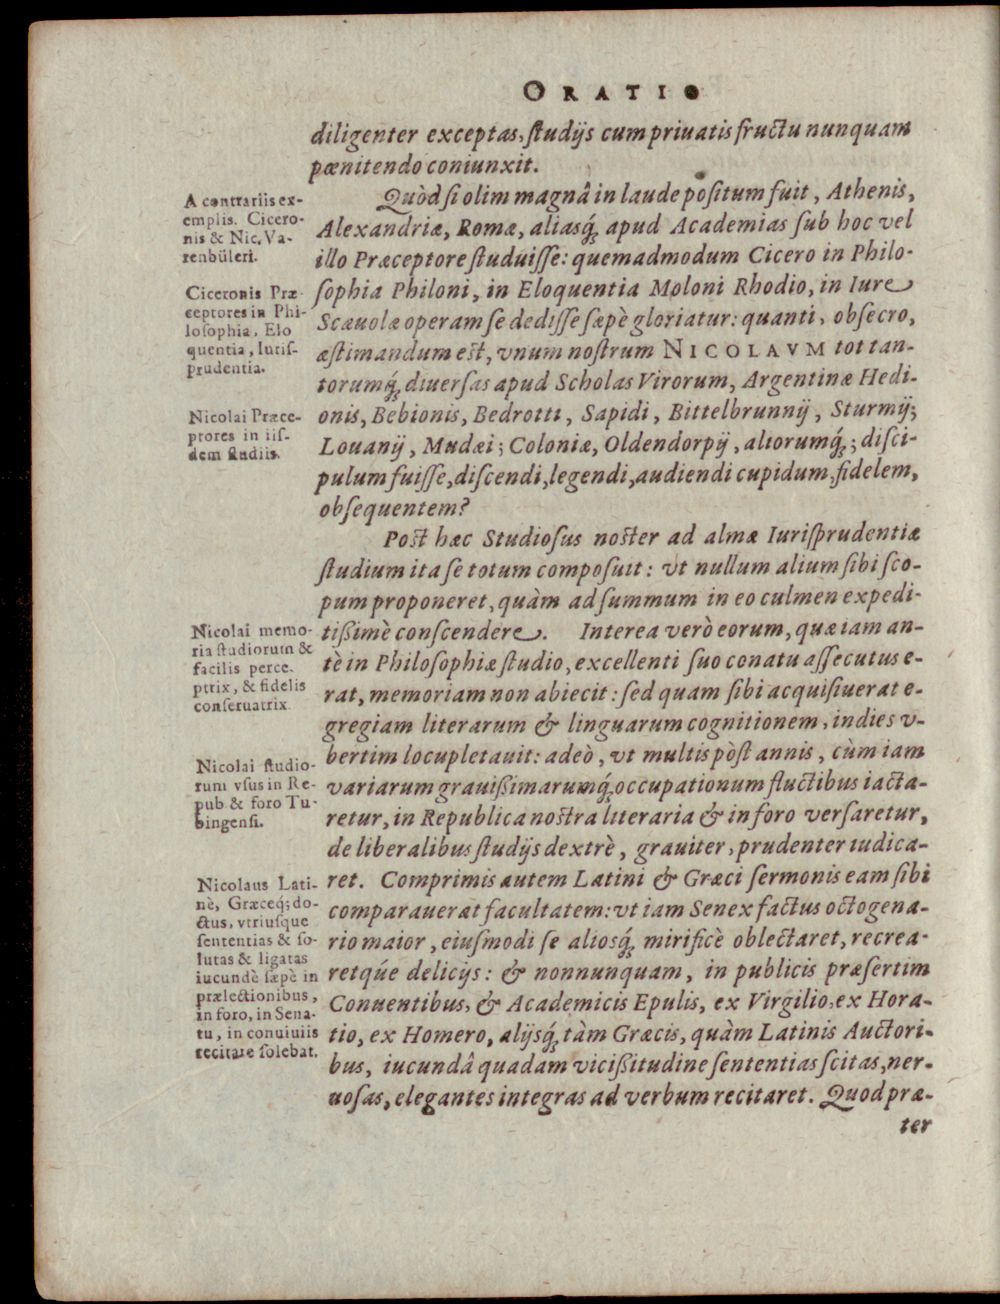 ORATIO
diligenter exceptas, ſtudijs cum priuatis fructu nunquam
pœnitendo coniunxit.
Quòd ſi olim magnâ in laude poſitum fuit, Athenis,
Alexandriæ, Romæ, aliasq́; apud Academias ſub hoc vel
illo Præceptore ſtuduiſſe: quemadmodum Cicero in Philo-
ſophia Philoni, in Eloquentia Moloni Rhodio, in Iure
Scæuolæ operam ſe dediſſe ſæpè gloriatur: quanti, obſecro,
æſtimandum eſt, vnum noſtrum NICOLAVM tot tan-
torumq́; diuerſas apud Scholas Virorum, Argentinæ Hedi-
onis, Bebionis, Bedrotti, Sapidi, Bittelbrunnij, Sturmij;
Louanij, Mudæi; Coloniæ, Oldendorpij, aliorumq́;; diſci-
pulum fuiſſe, diſcendi, legendi, audiendi cupidum, fidelem,
obſequentem?
Poſt hæc Studioſus noſter ad almæ Iuriſprudentiæ
ſtudium ita ſe totum compoſuit: vt nullum alium ſibi ſco-
pum proponeret, quàm ad ſummum in eo culmen expedi-
tißimè conſcendere. Interea verò eorum, quæ iam an-
tè in Philoſophiæ ſtudio, excellenti ſuo conatu aſſecutus e-
rat, memoriam non abiecit: ſed quam ſibi acquiſiuerat e-
gregiam literarum & linguarum cognitionem, indies v-
bertim locupletauit: adeò, vt multis pòſt annis, cùm iam
variarum grauißimarumq́; occupationum fluctibus iacta-
retur, in Republica noſtra literaria & in foro verſaretur,
de liberalibus ſtudijs dextrè, grauiter, prudenter iudica-
ret. Comprimis autem Latini & Græci ſermonis eam ſibi
comparauerat facultatem: vt iam Senex factus octogena-
rio maior, eiuſmodi ſe aliosq́; mirificè oblectaret, recrea-
retq́ue delicijs: & nonnunquam, in publicis præſertim
Conuentibus, & Academicis Epulis, ex Virgilio, ex Hora-
tio, ex Homero, alijsq́; tàm Græcis, quàm Latinis Auctori-
bus, iucundâ quadam vicißitudine ſententias ſcitas, ner-
uoſas, elegantes integras ad verbum recitaret. Quod præ-
ter
A contrariis ex-
emplis. Cicero-
nis & Nic. Va-
renbüleri.
Ciceronis Præ-
ceptores in Phi-
loſophia, Elo
quentia, Iuriſ-
prudentia.
Nicolai Præce-
ptores in iiſ-
dem ſtudiis.
Nicolai memo-
ria ſtudiorum &
facilis perce-
ptrix, & fidelis
conſeruatrix.
Nicolai ſtudio-
rum vſus in Re-
pub & foro Tu-
bingenſi.
Nicolaus Lati-
nè, Græceq́; do-
ctus, vtriuſque
ſententias & ſo-
lutas & ligatas
iucundè ſæpè in
prælectionibus,
in foro, in Sena-
tu, in conuiuiis
recitare ſolebat.